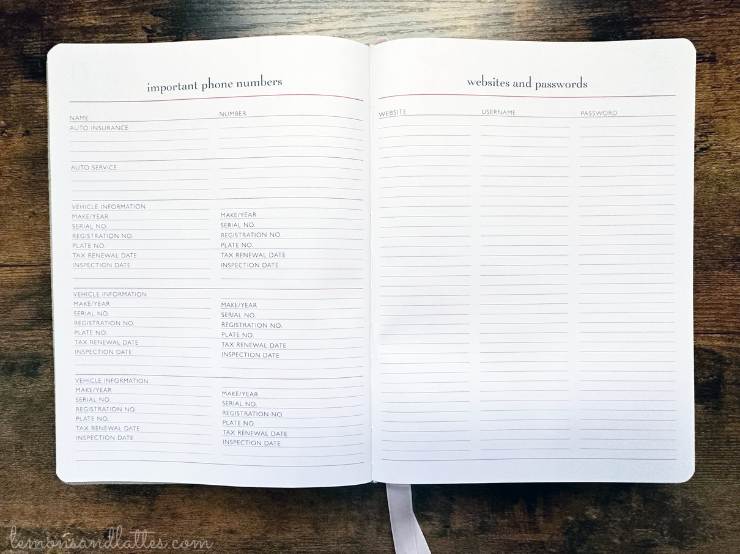 important phone numbers
NAME NUMBER
AUTO INSURANCE
AUTO SERVICE
VEHICLE INFORMATION
MAKE/YEAR MAKE/YEAR
SERIAL NO. SERIAL NO.
REGISTRATION NO. REGISTRATION NO.
PLATE NO. PLATE NO.
TAX RENEWAL DATE TAX RENEWAL DATE
INSPECTION DATE INSPECTION DATE
VEHICLE INFORMATION
MAKE/YEAR MAKE/YEAR
SERIAL NO. SERIAL NO.
REGISTRATION NO. REGISTRATION NO.
PLATE NO. PLATE NO.
TAX RENEWAL DATE TAX RENEWAL DATE
INSPECTION DATE INSPECTION DATE
VEHICLE INFORMATION
MAKE/YEAR MAKE/YEAR
SERIAL NO. SERIAL NO.
REGISTRATION NO. REGISTRATION NO.
PLATE NO. PLATE NO.
TAX RENEWAL DATE TAX RENEWAL DATE
INSPECTION DATE INSPECTION DATE
websites and passwords
WEBSITE USERNAME PASSWORD
lemonsandlattes.com